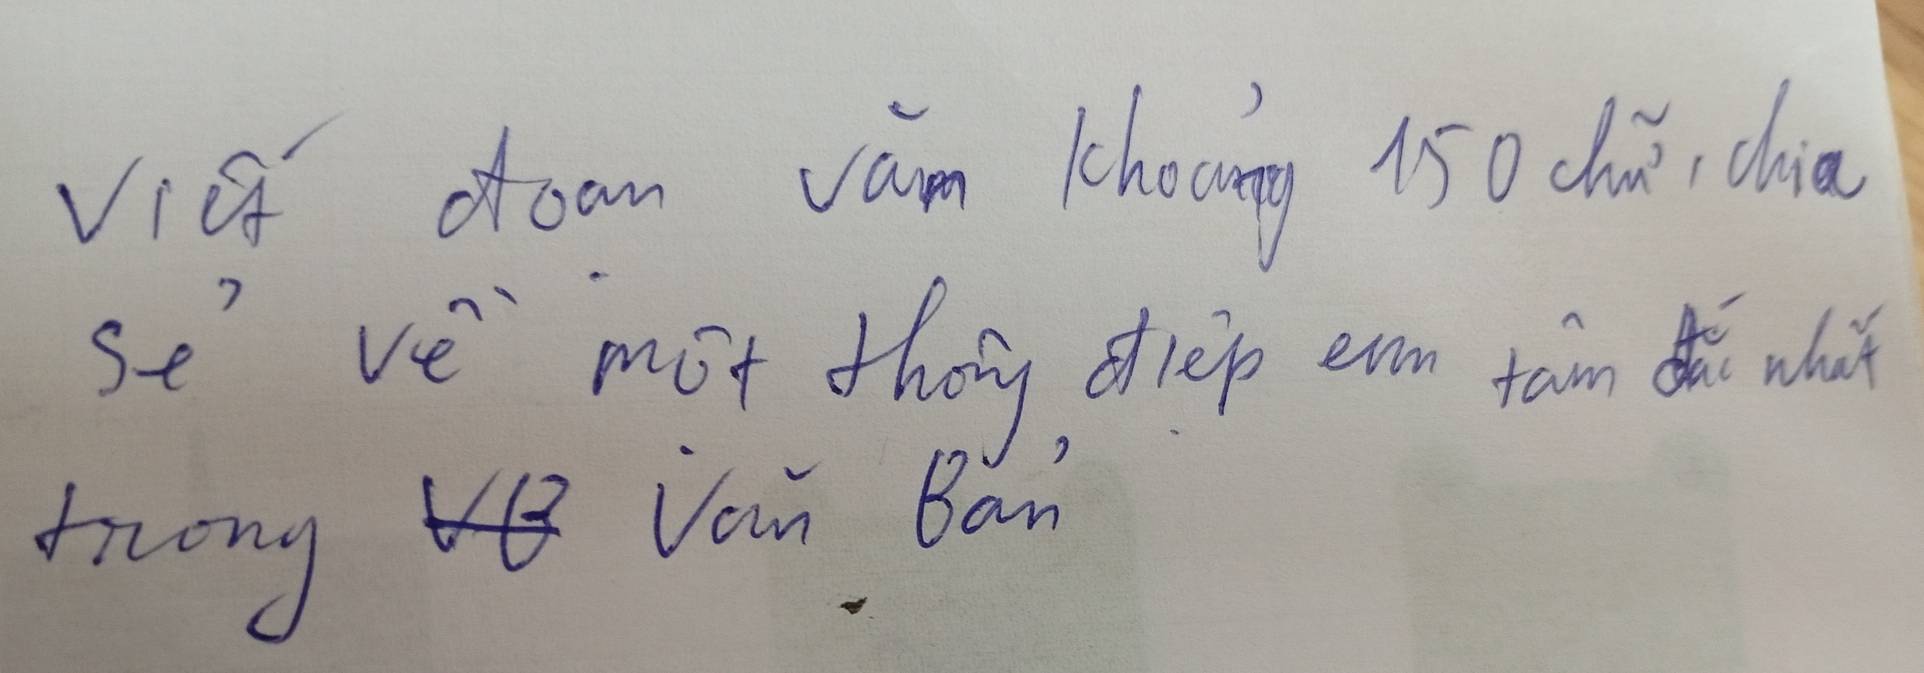 Viết đoạn văn khoảng 150 chữ, chia
sẻ về một thông điệp em tâm đắc nhất
trong VB Văn Bản